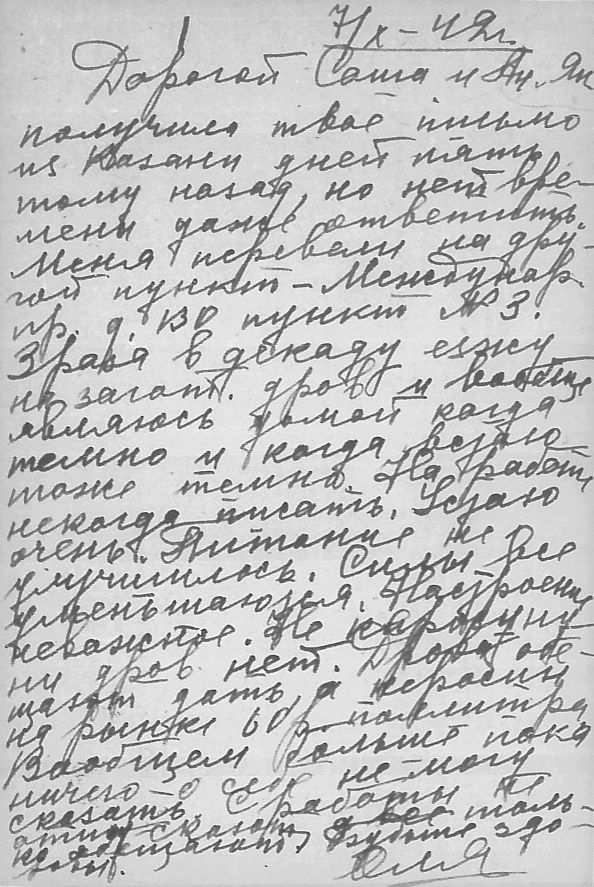 7/X-42г.
Дорогой Саша и Ан. Ян
получила твое письмо
из Казани дней пять
тому назад, но нет вре-
мени даже ответить.
Меня перевели на дру-
гой пункт - Междунар.
пр. д. 130 пункт № 3.
3 раза в декаду езжу
на загот. дров и вообще
являюсь домой когда
темно и когда встаю
тоже темно. На работе
некогда писать. Устаю
очень. Питание не
улучшилось. Силы все
уменьшаются. Настроение
неважное. Ни керосину
ни дров нет. Дрова обе-
щают дать, а керосин
на рынке 60 р. поллитра
Вообщем больше пока
ничего о себе не могу
сказать. С работы не
отпускают, толь-
ко обещают. Будьте здо-
ровы.
Оля